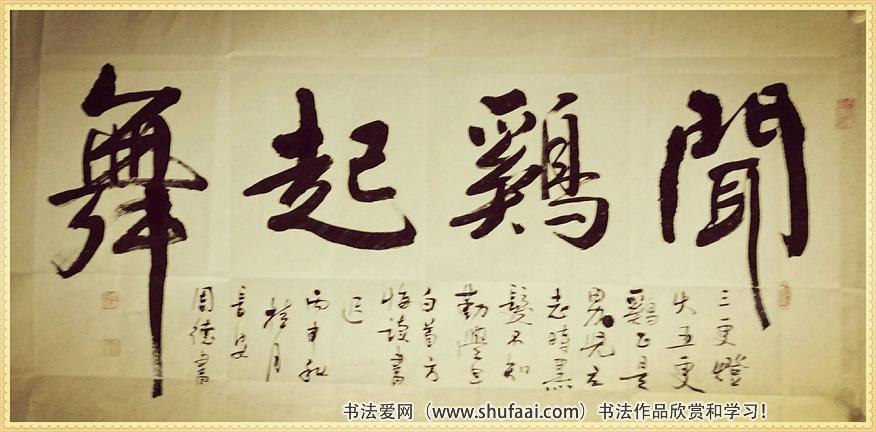 聞鷄起舞
三更燈
火五更
鷄正是
男兒立
志時黑
髮不知
勤學早
白首方
悔讀書
遲
丙申秋
桂月
長安
周德書
书法爱网（www.shufaai.com）书法作品欣赏和学习！